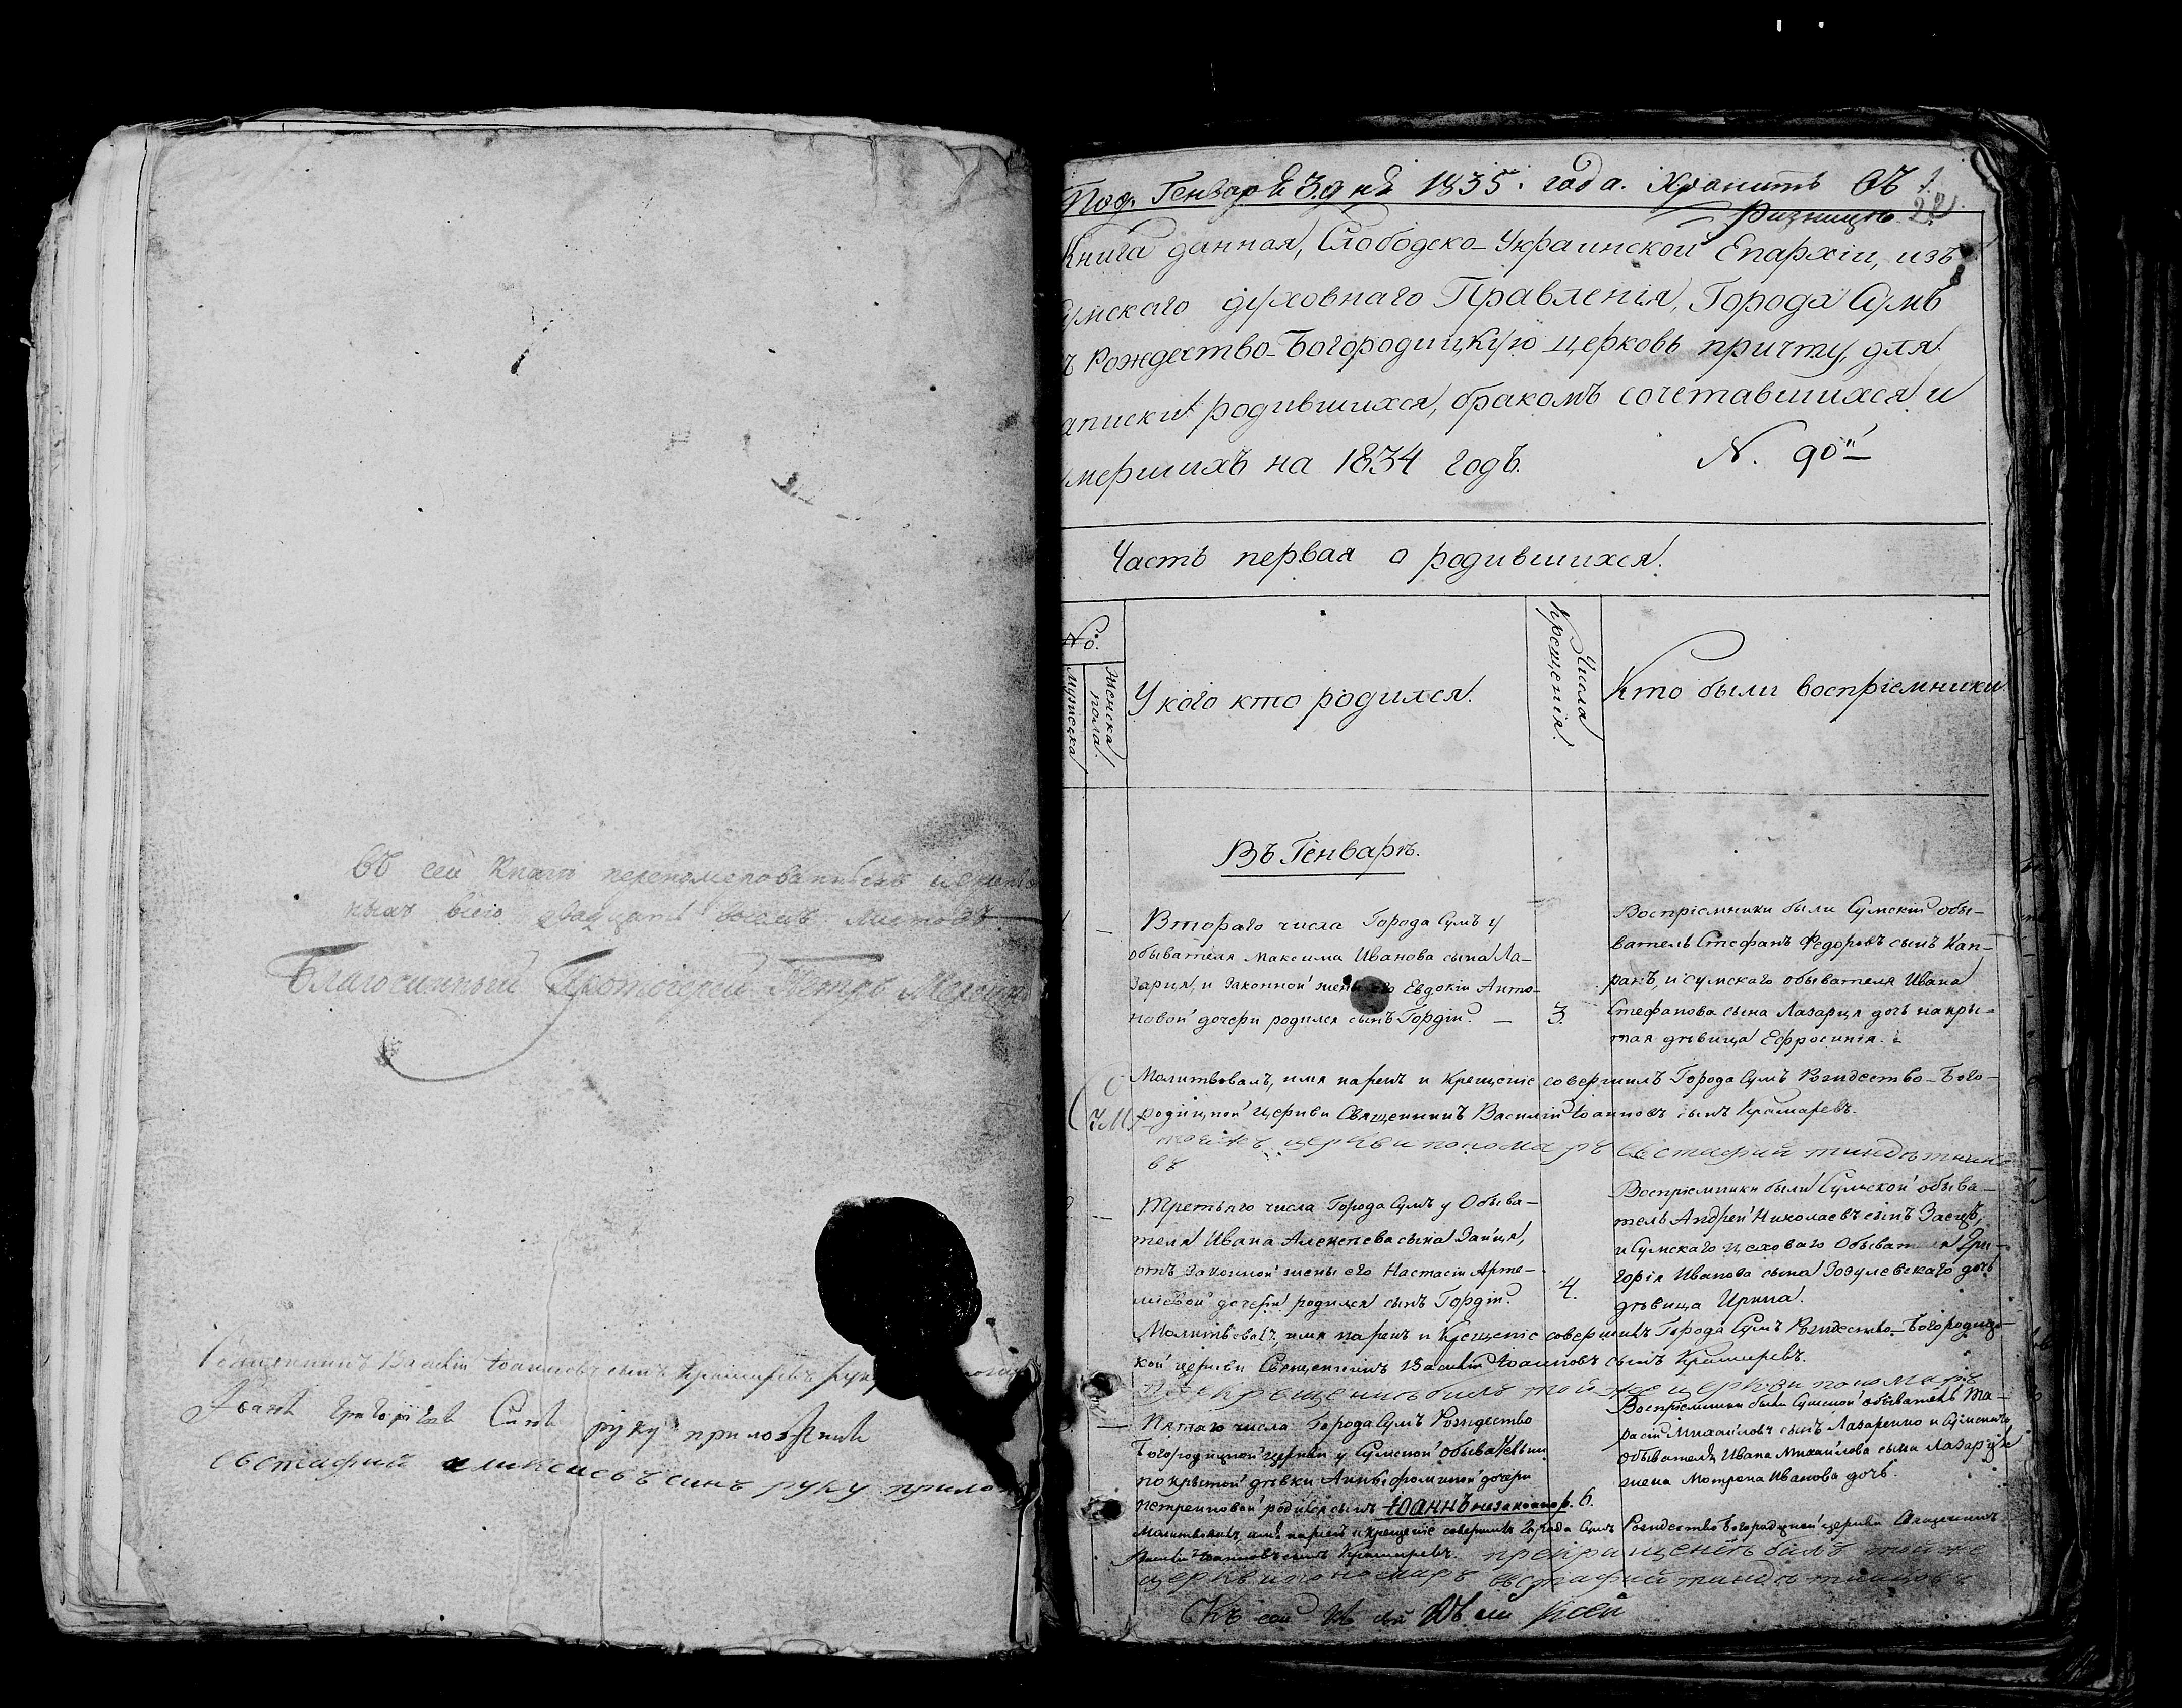 Въ сей книгѣ перенумерованныхъ
всего двадцать восемь листовъ
Благочинный Протоіерей Петръ
Священникъ Василій Іоанновъ сынъ Крамаревъ
руку приложилъ
Евстафий аликсиевъ синъ руку прило
Генваря 3 дня 1835. года. Хранить въ 1.
Ризницѣ
Книга данная, Слободско-Украинской Епархіи, изъ
умскаго духовнаго Правленія, Города Сумъ
ъ Рождество-Богородицкую церковь причту, для
аписки родившихся, бракомъ сочетавшихся и
мершихъ на 1834 годъ. N. 90й
Часть первая о родившихся.
No.
Мужеска
Женска пола.
У кого кто родился.
Числа крещенія.
Кто были воспріемники
Въ Генварѣ.
Втораго числа Города Сумъ у
обывателя Максима Иванова сына Ла-
заря, и законной жены его Евдокіи Анто-
новой дочери родился сынъ Гордій. —
3.
Воспріемники были Сумскій обы-
ватель Стефанъ Федоровъ сынъ Кап-
ранъ, и сумскаго обывателя Ивана
Стефанова сына Лазаря дочь накры-
тая дѣвица Ефросинія.
Молитвовалъ, имя нарекъ и крещеніе совершилъ Города Сумъ Рождество-Бого-
родицкой церкви Священникъ Василій Іоанновъ сынъ Крамаревъ.
церкви пономаръ Евстафий
въ
Третьяго числа Города Сумъ у Обыва-
теля Ивана Алексѣева сына Зайця,
отъ законной жены его Настасіи Арте-
міевой дочери родился сынъ Гордій.
4.
Воспріемники были Сумской обыва-
тель Андрей Николаевъ сынъ Заецъ,
и Сумскаго цеховаго Обывателя Гри-
горія Иванова сына Зозулевскаго дочь
дѣвица Ирина.
Молитвовалъ, имя нарекъ и крещеніе совершилъ Города Сумъ Рождество-Богородиц-
кой церкви Священникъ Василій Іоанновъ сынъ Крамаревъ.
крещениъ билъ той же церкви пономаръ
Пятаго числа Города Сумъ Рождество
Богородицкой церкви у Сумской обывательки
покрытой дѣвки Анны Фоминой дочери
родился сынъ Іоаннъ незаконнор. 6.
Воспріемники были Сумской обыватель Та-
расій Михайловъ сынъ Лазаренко и Сумскаго
обывателя Ивана Михайлова сына Лазаря
жена Мотрона Иванова дочь.
Молитвовалъ, имя нарекъ и крещеніе совершилъ Города Сумъ Рождество Богородицкой церкви Священникъ
Василій Іоанновъ сынъ Крамаревъ. прикрищениъ билъ той же
церкви пономаръ Евстафий